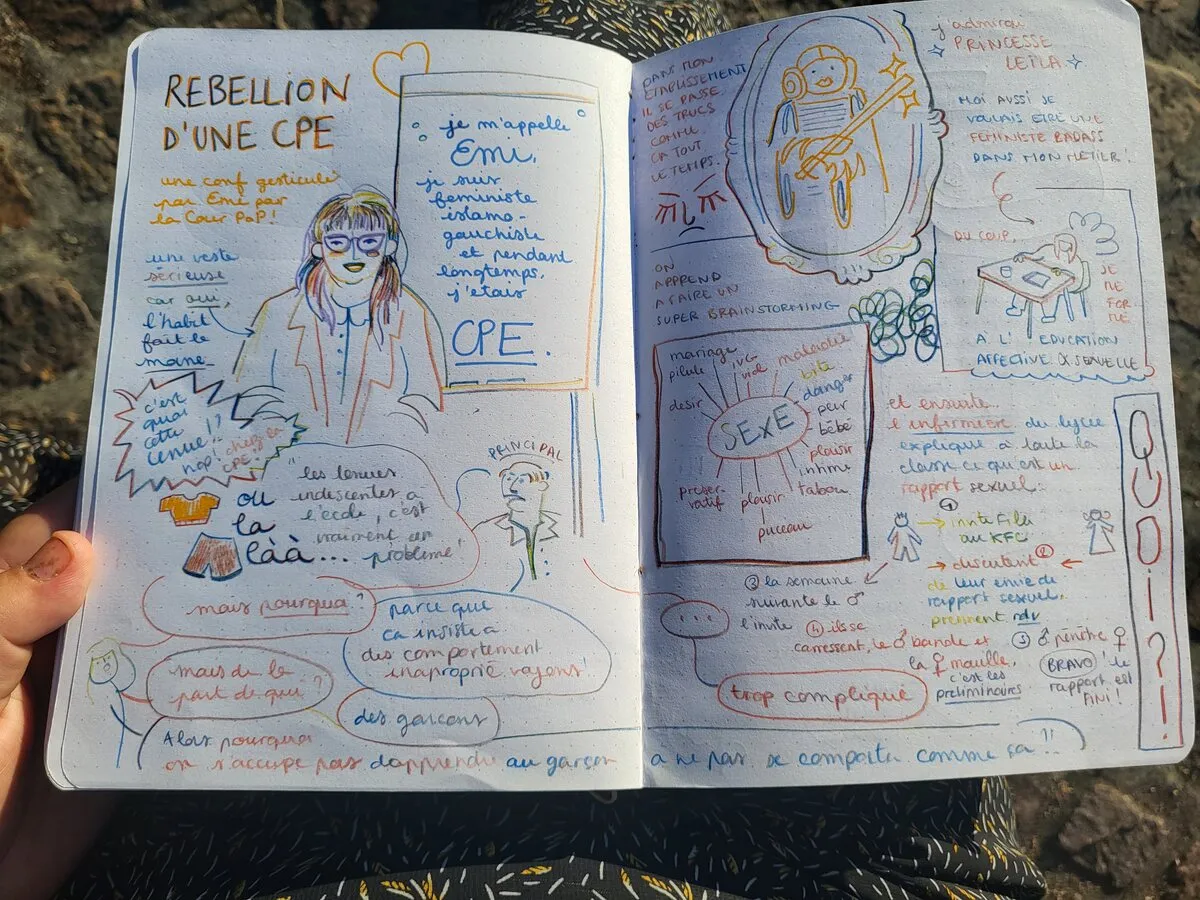 REBELLION
D'UNE CPE
une conf gesticulée
par Emi par
la Cour PoP!
une veste
sérieuse
car oui,
l'habit
fait le
moine
je m'appelle
Emi,
je suis
féministe
islamo-
gauchiste
et pendant
longtemps,
j'étais
CPE.
c'est
quoi
cette
tenue!?
nop! chez la
CPE!
ou
la
làà...
"les tenues
indescentes à
l'école, c'est
vraiment un
problème!
PRINCIPAL
mais pourquoi?
parce que
ça insiste à
des comportement
inaproprié, voyons!
mais de la
part de qui?
des garçons
Alors pourquoi
on s'accupe pas d'apprendre au garçon à ne pas se comporter comme ça!!
DANS MON
ETABLISSEMENT
IL SE PASSE
DES TRUCS
COMME
ÇA TOUT
LE TEMPS.
j'admirai
PRINCESSE
LEÏLA
MOI AUSSI JE
VOULAIS ETRE UNE
FEMINISTE BADASS
DANS MON METIER!
DU COUP,
JE
ME
FOR-
ME
À L'EDUCATION
AFFECTIVE & SEXUELLE
ON
APPREND
A FAIRE UN
SUPER BRAINSTORMING
SEXE
mariage
pilule
IVG
viol
maladie
bite
danger
peur
bébé
plaisir
intime
tabou
puceau
plaisir
préser-
vatif
desir
et ensuite
l'infirmière du lycée
explique à toute la
classe ce qu'est un
rapport sexuel:
① invite Fille
au KFC
→ discutent ② ←
de leur envie de
rapport sexuel.
prennent rdv
③ la semaine
suivante le ♂
l'invite
④ ils se
carressent, le ♂ bande et
la ♀ mouille,
c'est les
preliminaires
⑤ ♂ pénètre ♀
BRAVO! le
rapport est
FINI!
...
trop compliqué
QUOI?!